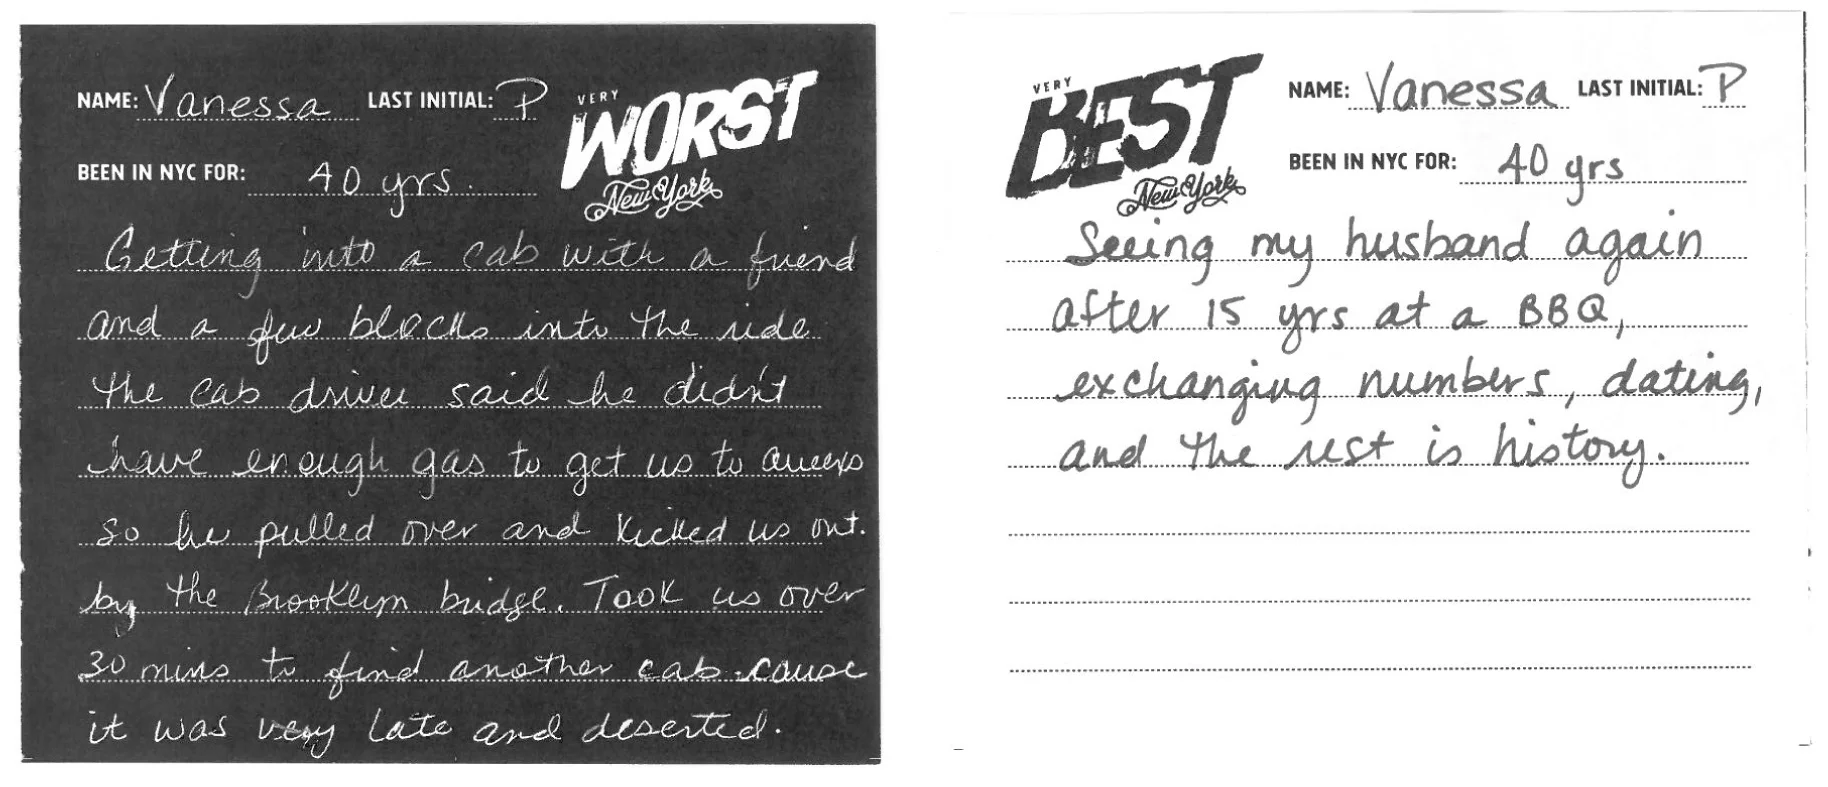 NAME: Vanessa LAST INITIAL: P
VERY
WORST
New York
BEEN IN NYC FOR: 40 yrs.
Getting into a cab with a friend
and a few blocks into the ride
the cab driver said he didn't
have enough gas to get us to Queens
so he pulled over and kicked us out.
by the Brooklyn bridge. Took us over
30 mins to find another cab cause
it was very late and deserted.
VERY
BEST
New York
NAME: Vanessa LAST INITIAL: P
BEEN IN NYC FOR: 40 yrs
Seeing my husband again
after 15 yrs at a BBQ,
exchanging numbers, dating,
and the rest is history.